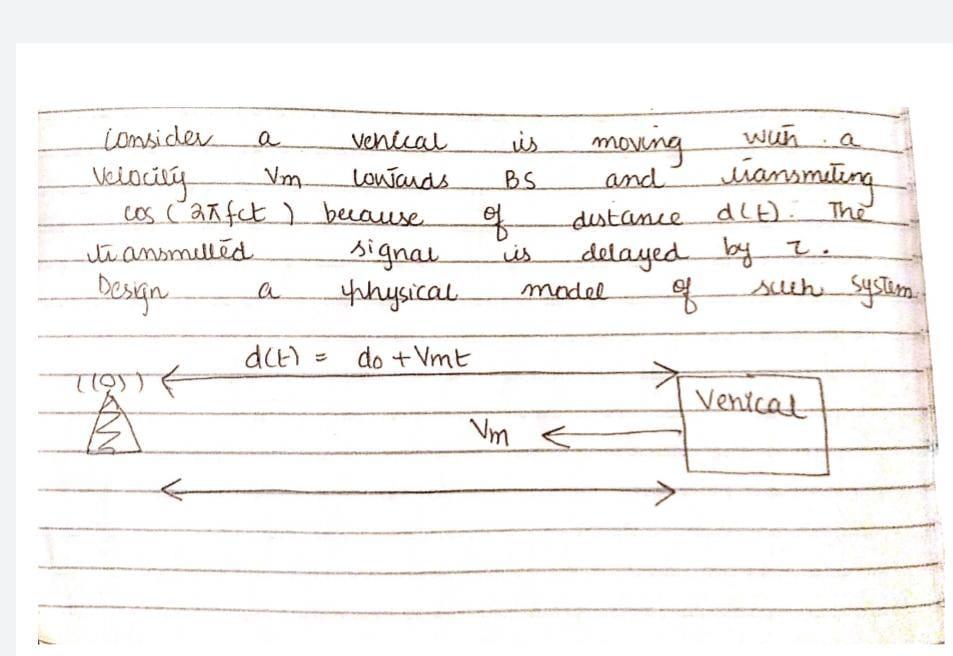 Consider a venical is moving with a
Velocity Vm towards BS and transmiting
cos (2πfct) because of distance d(t). The
transmitted signal is delayed by τ.
Design a physical model of such system
d(t) = do + Vmt
((o))
Venical
Vm